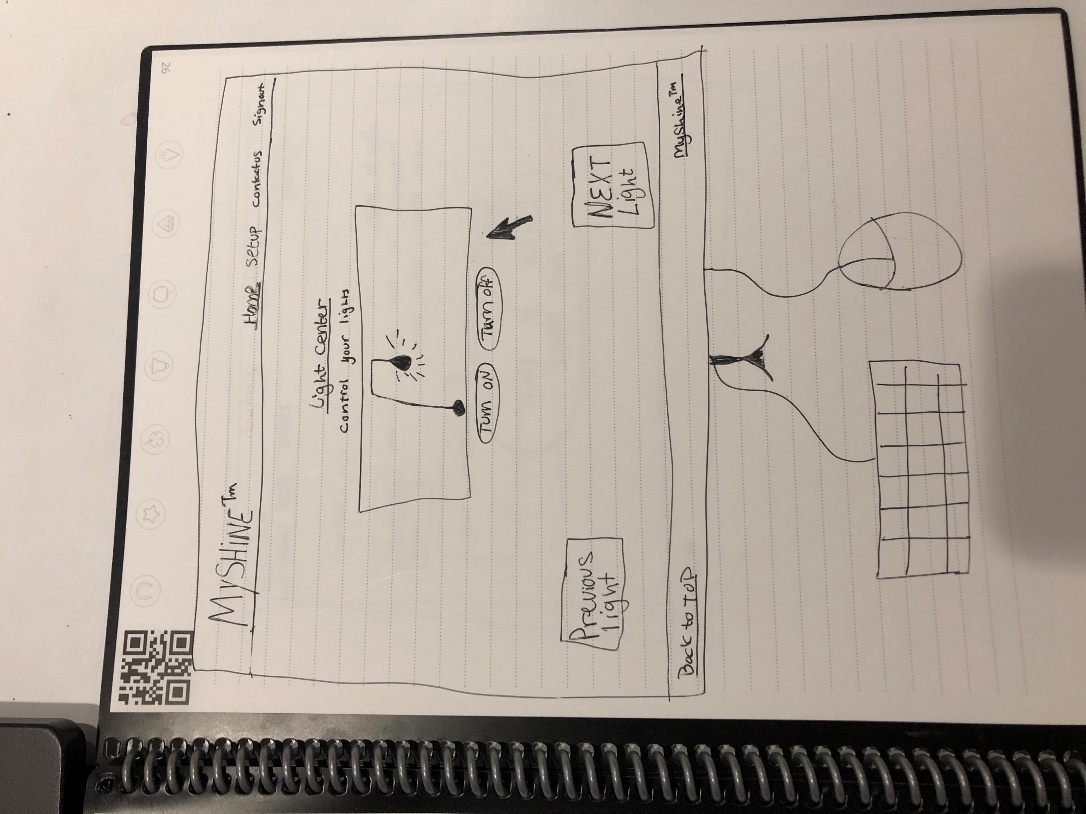 MySHiNE™
Home setup contactus Signout
Light Center
control your lights
Turn ON Turn off
Previous Light
NEXT Light
Back to TOP MyShine™
26